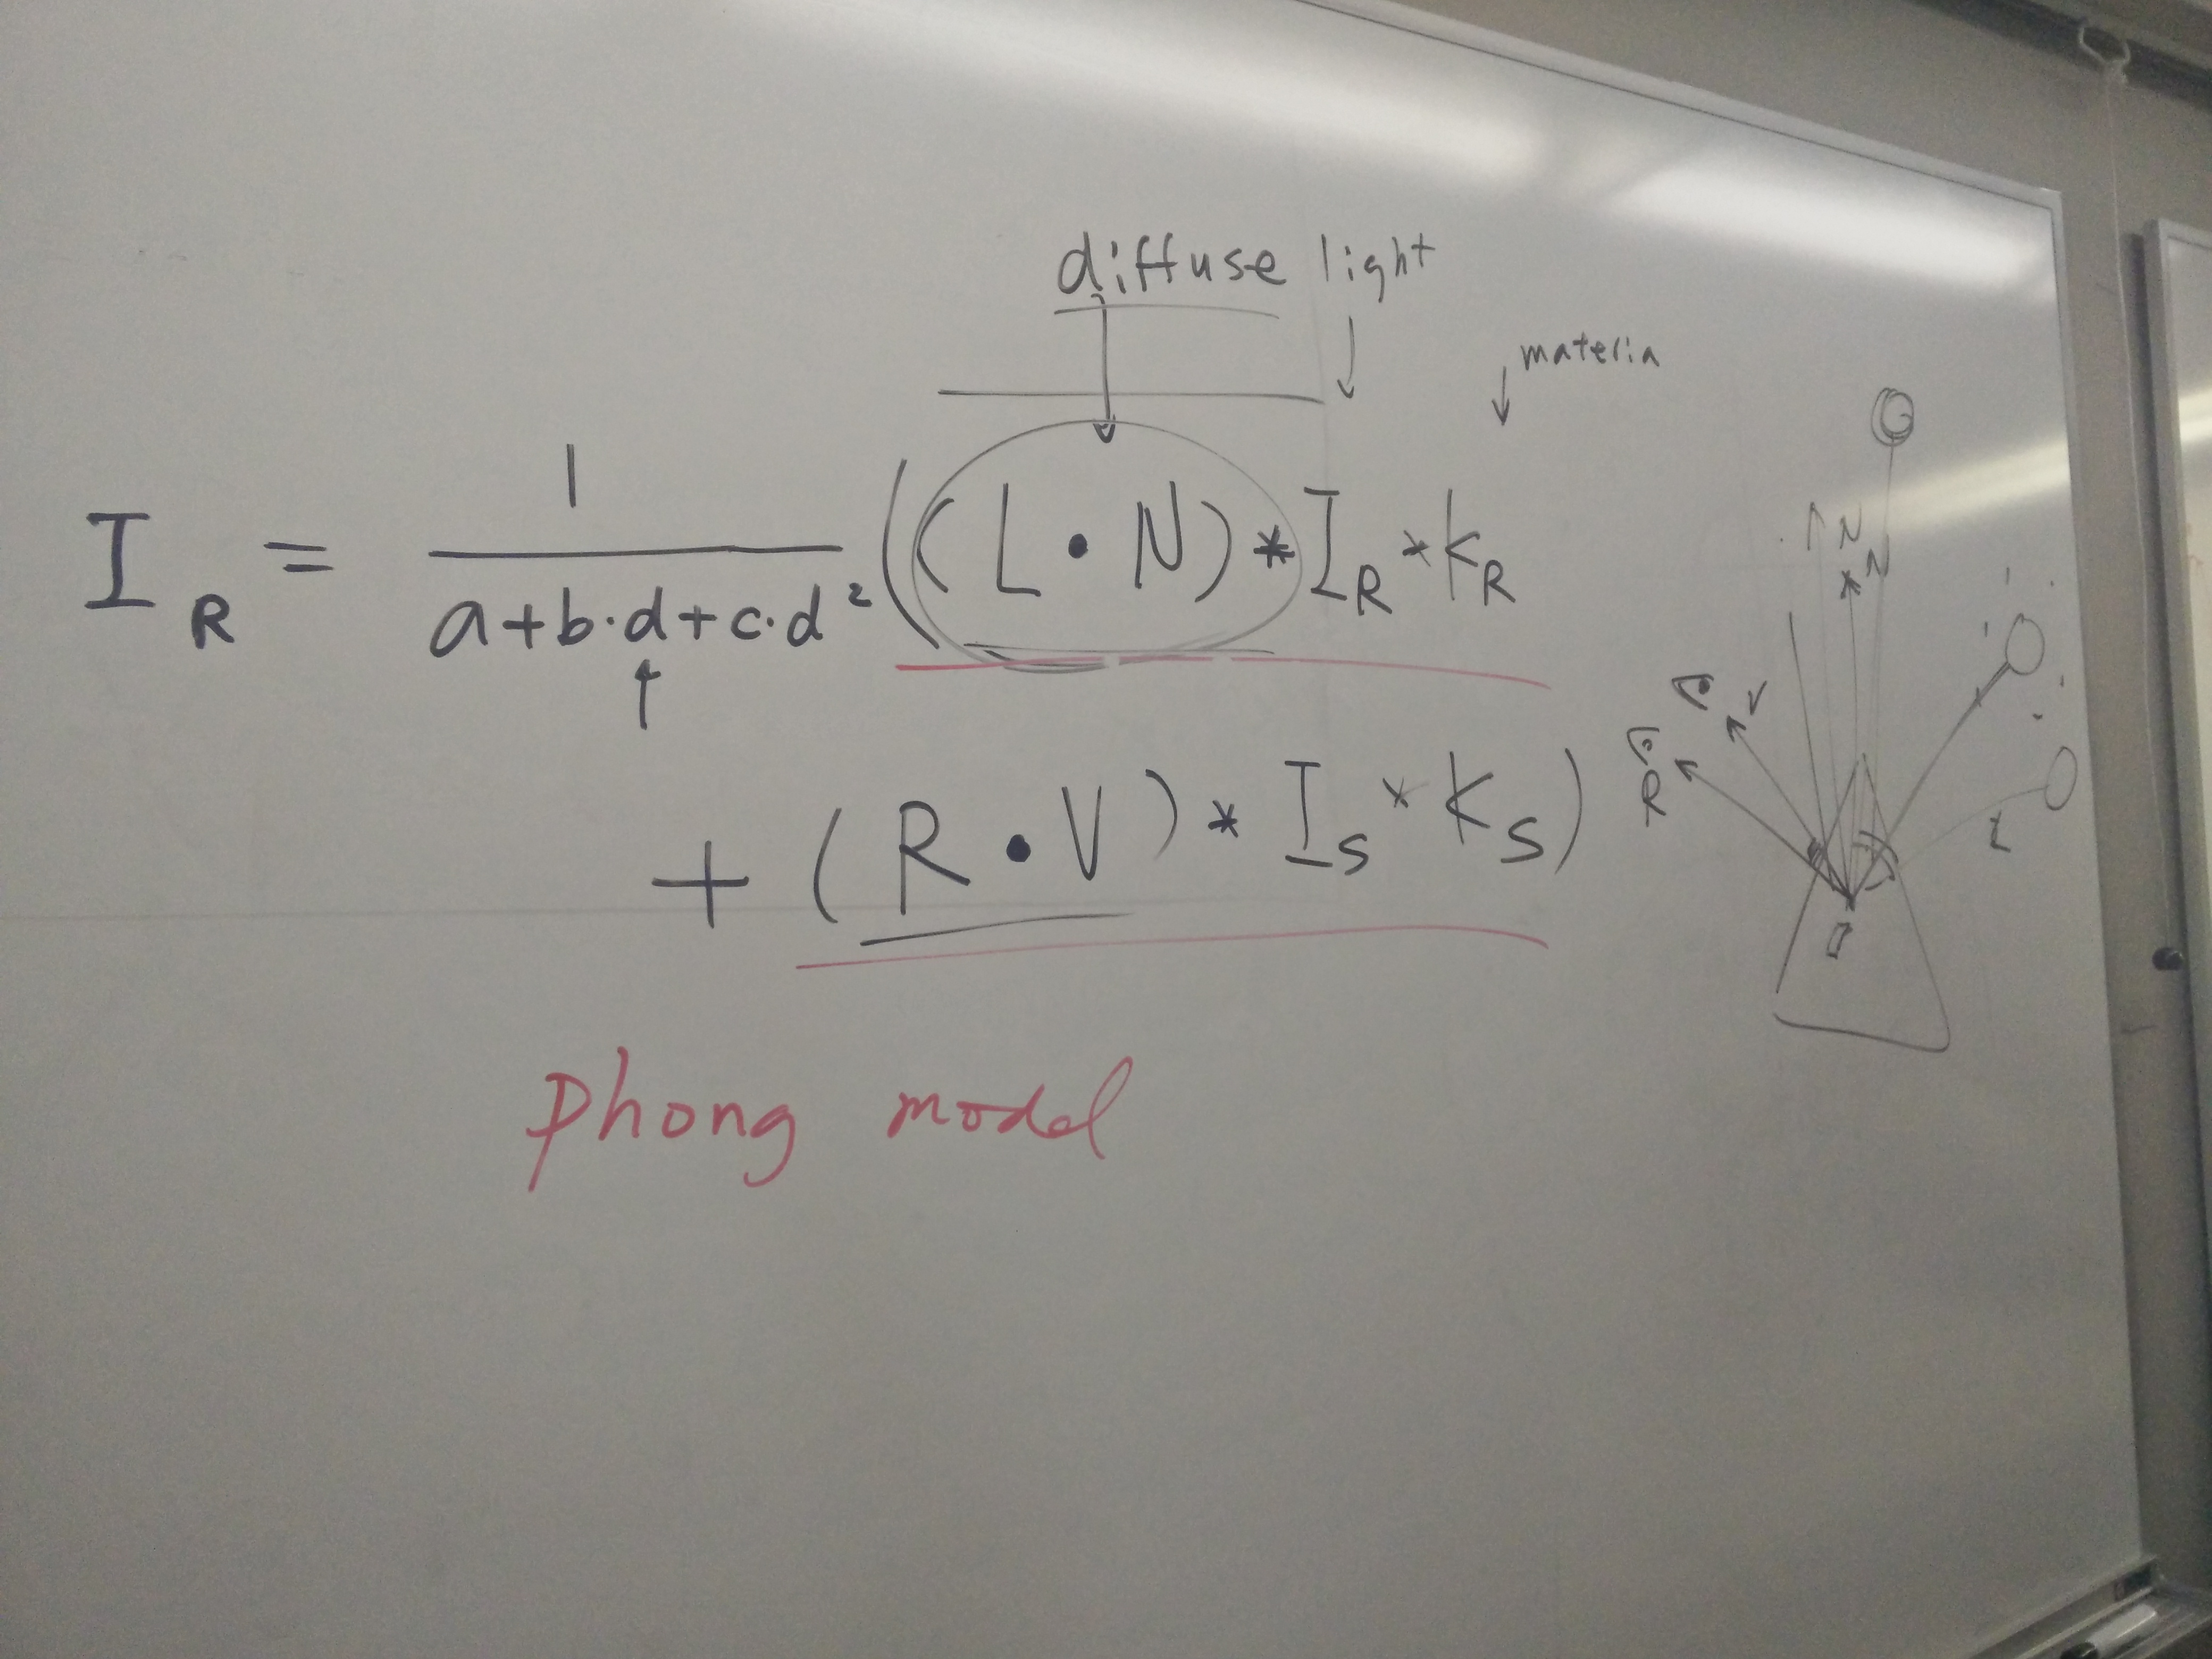 diffuse light
materia
I_R = 1/(a+b·d+c·d²) ((L·N)*I_R*k_R
+ (R·V)*I_s*k_s)
Phong model
N
N
V
R
L